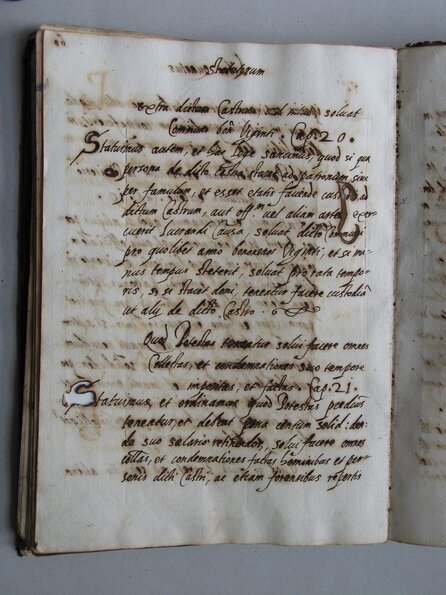 Statutorum
extra dictum Castrum, vel soluat
Communi bon. Viginti. Cap. 20.
Statuimus autem, et hac lege sancimus, quod si qua
persona de dicto castro staret ad patronum, siue
per famulum, et esset etatis faciende custodiae ad
dictum Castrum, aut off.m uel aliam artem exer
cuerit lucrandi causa, soluat dicto Communi
pro quolibet anno bonorenos Viginti, et si mi
nus tempus steterit, soluat pro rata tempo-
ris, et si staret dani, teneatur facere custodia
ut alij de dicto Castro.
Quod Potestas teneatur solui facere omnes
Collectas, et condemnationes suo tempore
impositas, et factas. Cap. 21.
Statuimus, et ordinamus quod Potestas
teneatur, et debeat pena centum solid:
de suo salario retinendor, solui facere omnes
collas, et condemnationes factas hominibus et per-
sonis dicti Castri, ac etiam forensibus repertis